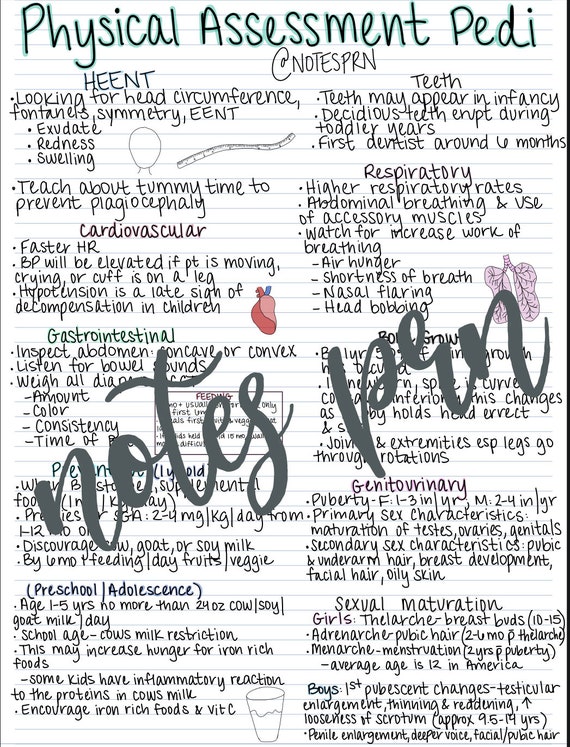 Physical Assessment Pedi
@NOTESPRN
HEENT
• Looking for head circumference,
fontanels, symmetry, EENT
• Exudate
• Redness
• Swelling
• Teach about tummy time to
prevent plagiocephaly
Cardiovascular
• Faster HR
• BP will be elevated if pt is moving,
crying, or cuff is on a leg
• Hypotension is a late sign of
decompensation in children
Gastrointestinal
• Inspect abdomen: concave or convex
• Listen for bowel sounds
• Weigh all
- Amount
- Color
- Consistency
- Time of
FEEDING
• Discourage cow, goat, or soy milk
• By 6mo ↑ feeding/day fruits/veggie
(Preschool/Adolescence)
• Age 1-5 yrs no more than 24oz cow/soy/
goat milk/day
• School age - cows milk restriction
• This may increase hunger for iron rich
foods
- some kids have inflammatory reaction
to the proteins in cows milk
• Encourage iron rich foods & vit C
Teeth
• Teeth may appear in infancy
• Decidious teeth erupt during
toddler years
• First dentist around 6 months
Respiratory
• Higher respiratory rates
• Abdominal breathing & use
of accessory muscles
• Watch for increase work of
breathing
- Air hunger
- Shortness of breath
- Nasal flaring
- Head bobbing
notes prn
• Joints & extremities esp legs go
through rotations
Genitourinary
• Puberty - F: 1-3 in/yr, M: 2-4 in/yr
• Primary sex characteristics:
maturation of testes, ovaries, genitals
• Secondary sex characteristics: pubic
& underarm hair, breast development,
facial hair, oily skin
Sexual maturation
Girls: Thelarche - breast buds (10-15)
• Adrenarche - pubic hair (2-6mo p̄ thelarche)
• Menarche - menstruation (2yrs p̄ puberty)
- average age is 12 in America
Boys: 1st pubescent changes - testicular
enlargement, thinning & reddening, ↑
looseness of scrotum (approx 9.5-14 yrs)
• Penile enlargement, deeper voice, facial/pubic hair